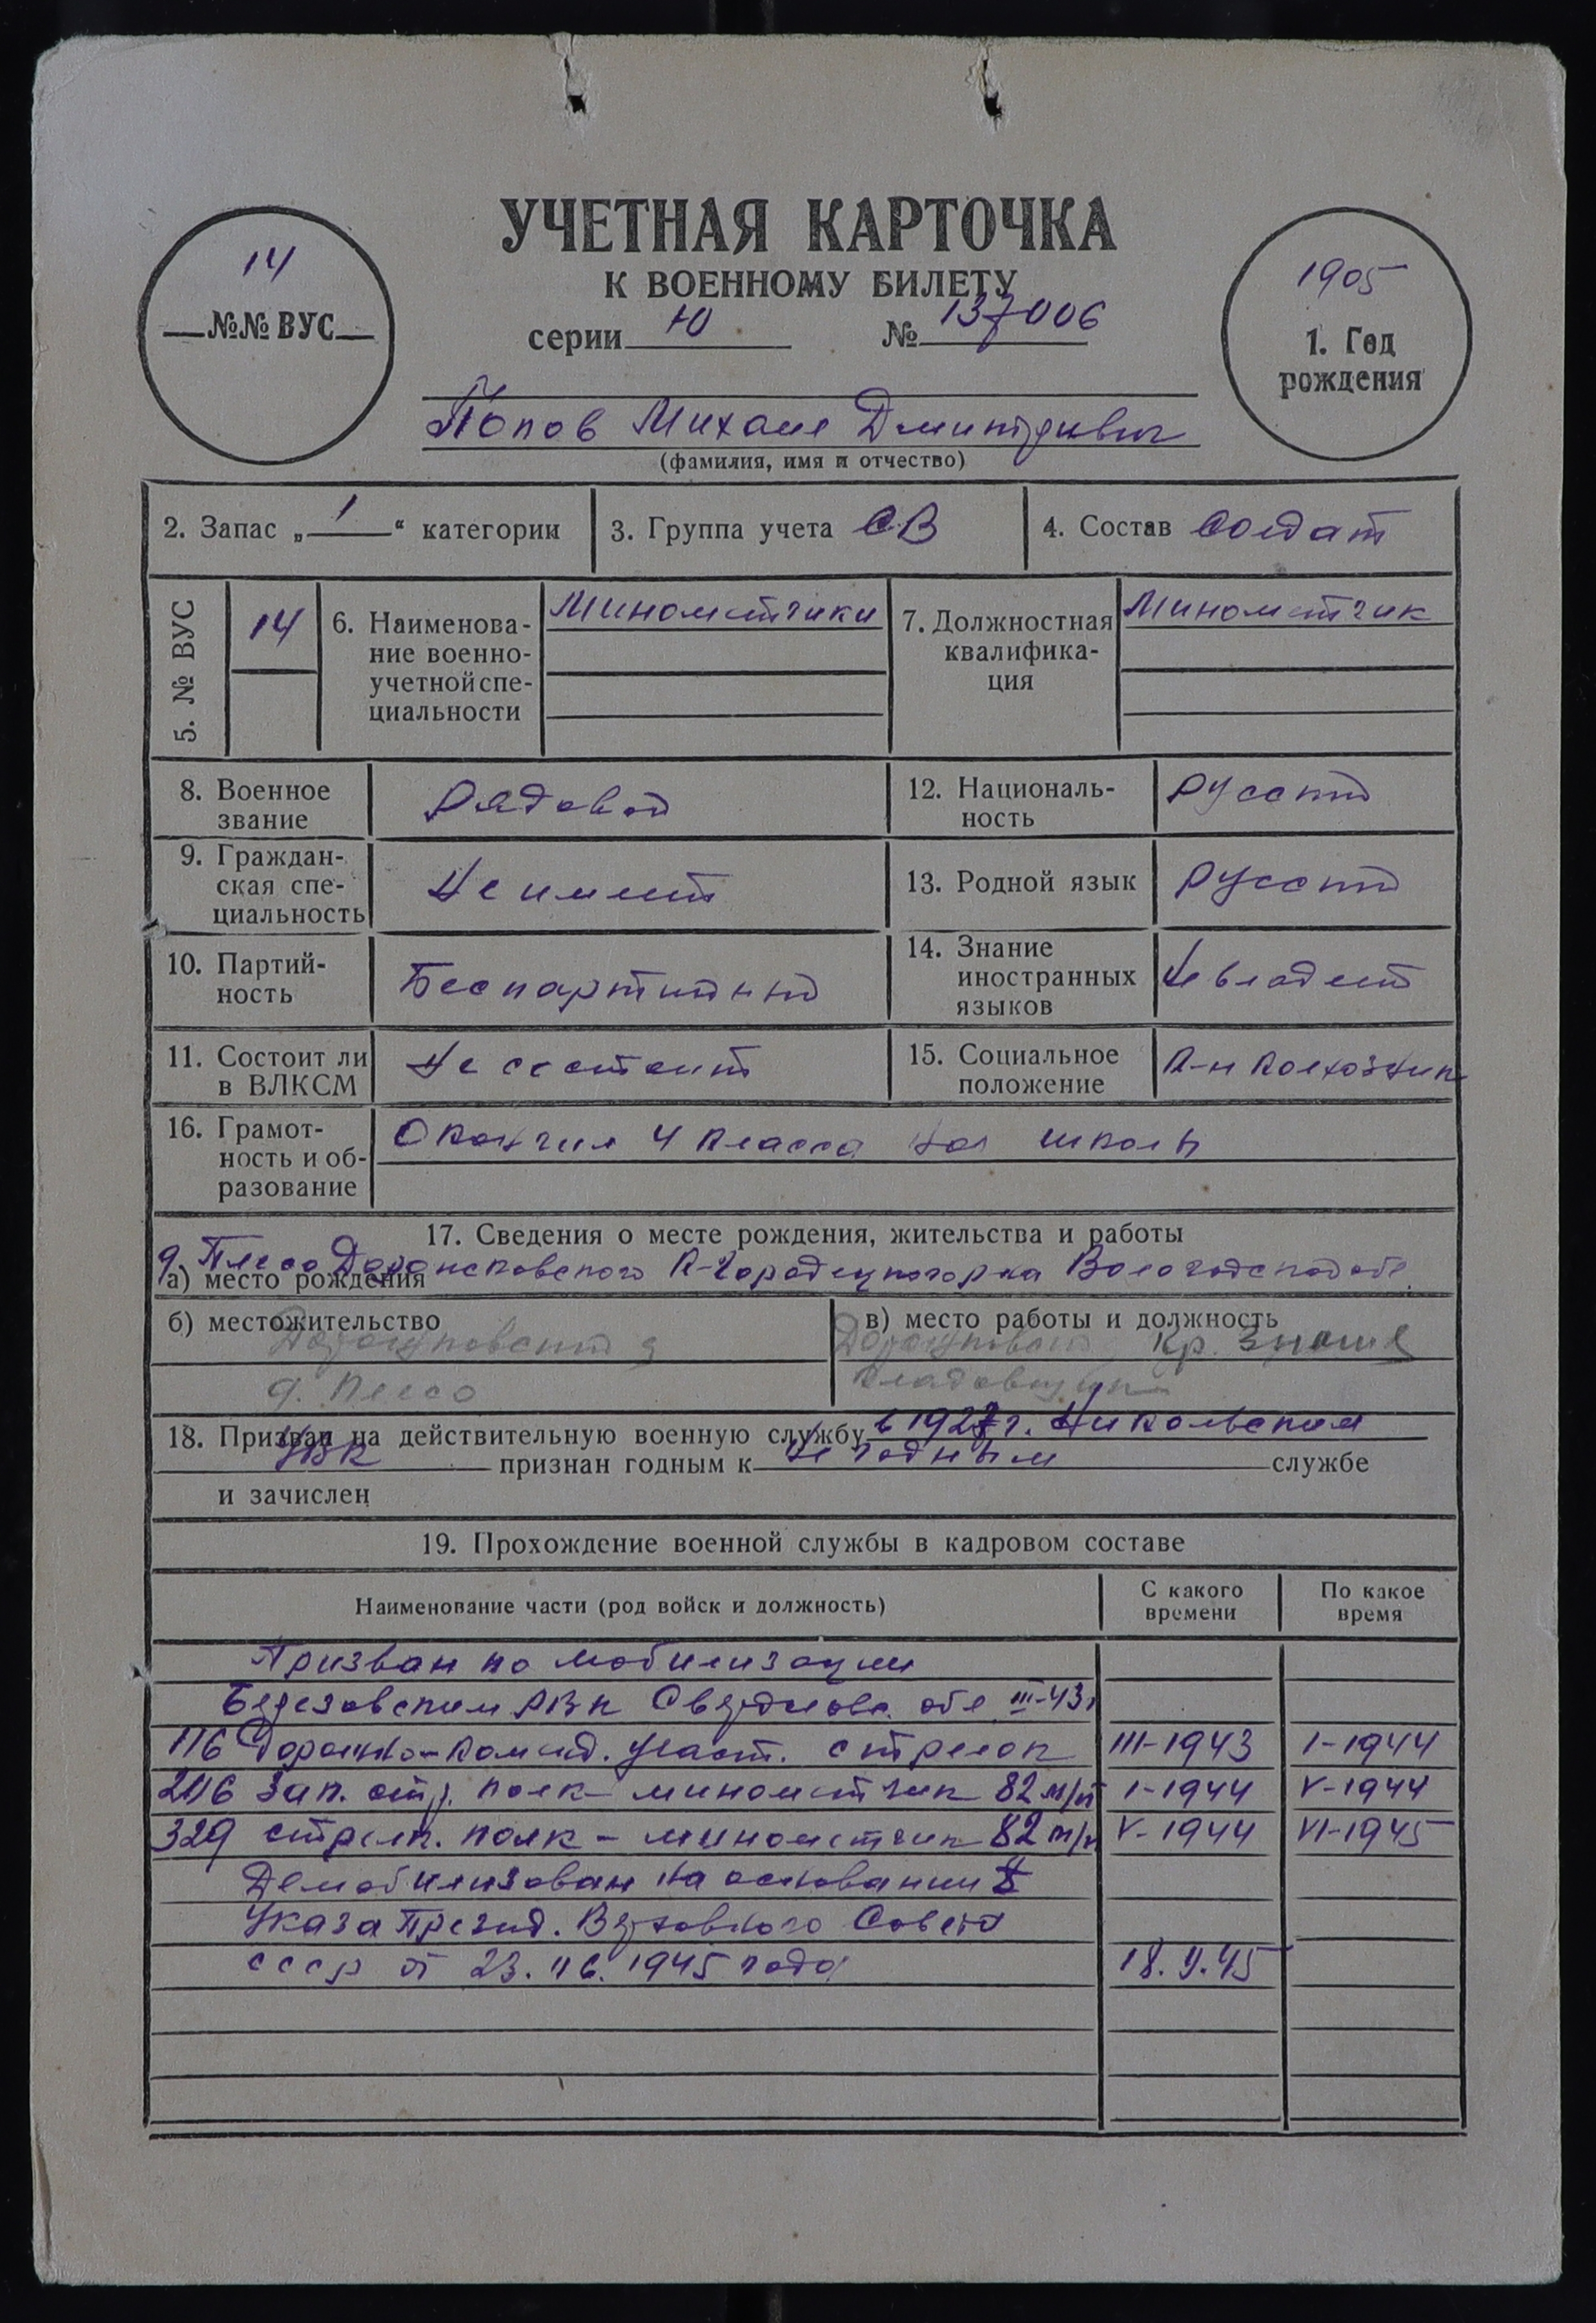 УЧЕТНАЯ КАРТОЧКА
К ВОЕННОМУ БИЛЕТУ
серии Ю № 137006
14
№№ ВУС
1905
1. Год
рождения
Попов Михаил Дмитриевич
(фамилия, имя и отчество)
2. Запас „1“ категории
3. Группа учета СВ
4. Состав Солдат
5. № ВУС
14
6. Наименова-
ние военно-
учетной спе-
циальности
Минометчики
7. Должностная
квалифика-
ция
Минометчик
8. Военное
звание
Рядовой
12. Националь-
ность
Русский
9. Граждан-
ская спе-
циальность
Не имеет
13. Родной язык
Русский
10. Партий-
ность
Беспартийный
14. Знание
иностранных
языков
Не владеет
11. Состоит ли
в ВЛКСМ
Не состоит
15. Социальное
положение
К-н колхозник
16. Грамот-
ность и об-
разование
Окончил 4 класса нач школы
17. Сведения о месте рождения, жительства и работы
а) место рождения
д. Плесо К-Городецкого р-на Вологодской обл.
б) местожительство
д. Плесо
в) место работы и должность
Кр. Знамя
Кладовщик
18. Призван на действительную военную службу в 1927 г. Никольским
УВК признан годным к не годным службе
и зачислен
19. Прохождение военной службы в кадровом составе
Наименование части (род войск и должность)
С какого
времени
По какое
время
Призван по мобилизации
Березовским РВК Свердловс. обл III-43г
116 Дорожно-коменд. участ. стрелок III-1943 I-1944
206 Зап. стр. полк - минометчик 82 м/м I-1944 V-1944
329 стрелк. полк - минометчик 82 м/м V-1944 VI-1945
Демобилизован на основании
Указа Презид. Верховного Совета
СССР от 23.06.1945 года 18.9.45